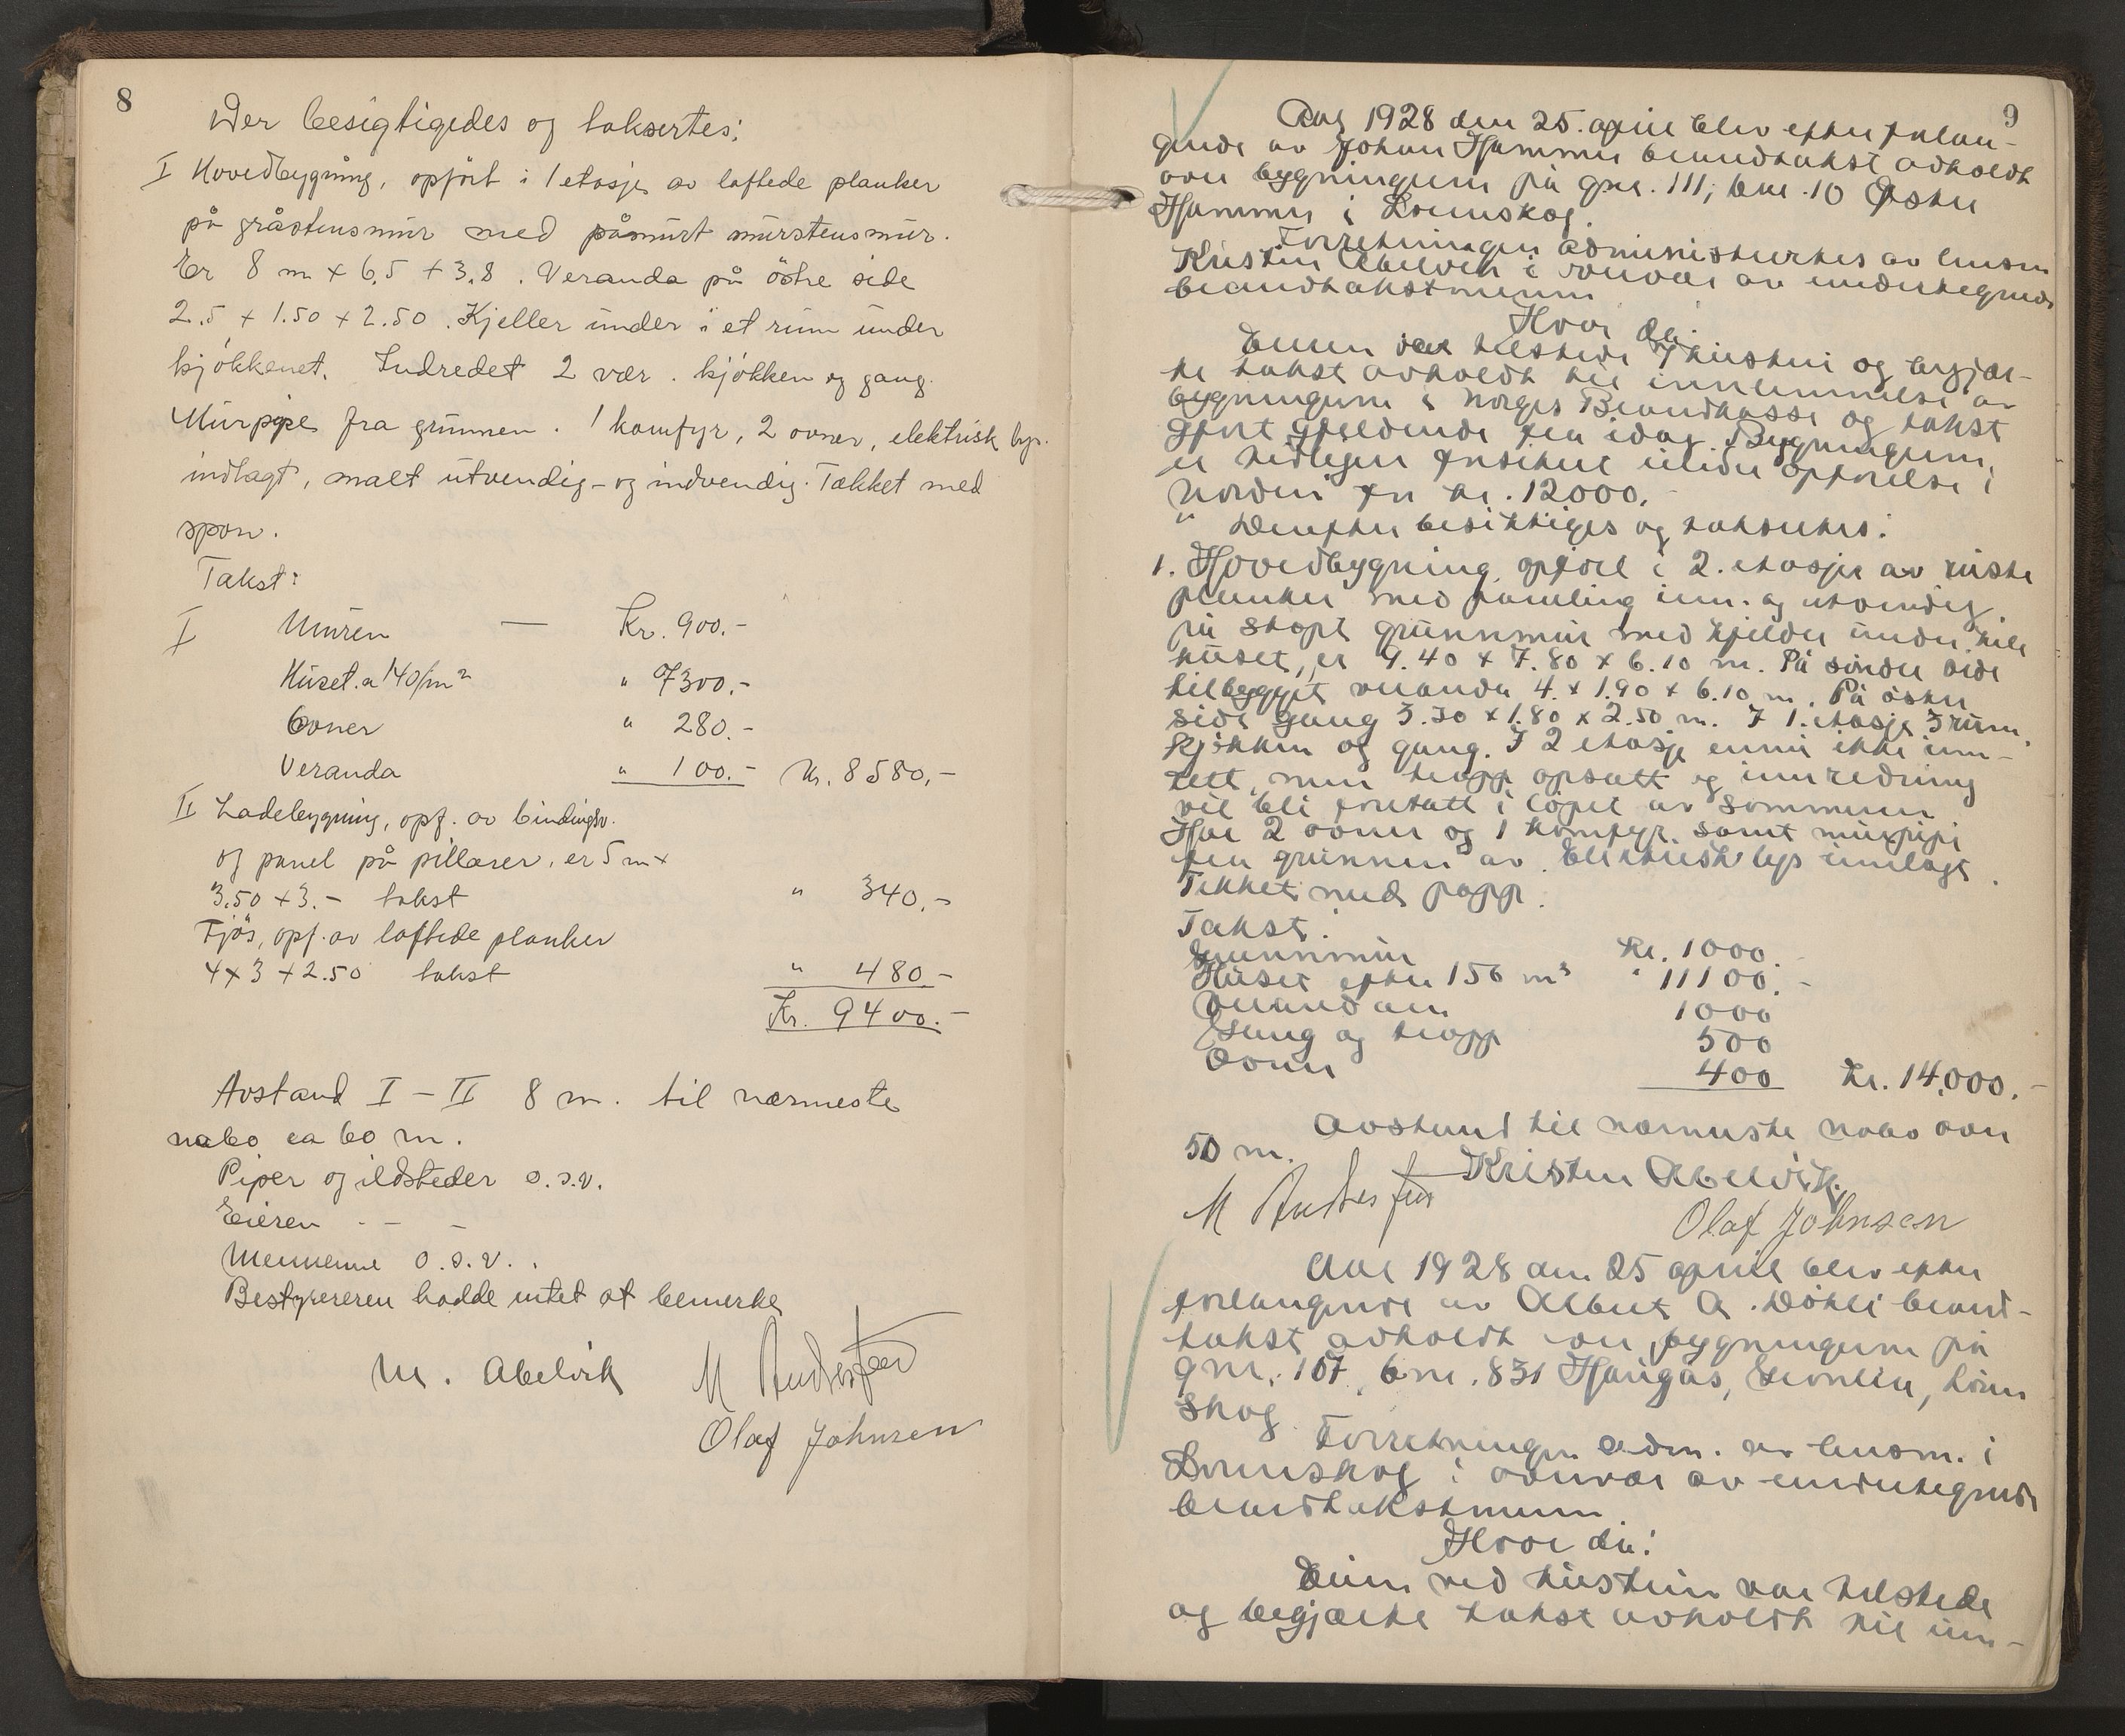 8
Der besigtigedes og taksertes:
I Hovedbygning, opført i 1 etasje av laftede planker
på gråstensmur med påmurt murstensmur.
Er 8 m x 6,5 + 3,8. Veranda på östre side
2.5 + 1.50 + 2.50. Kjeller under i et rum under
kjøkkenet. Indredet 2 vær. kjøkken og gang.
Murpipe fra grunnen. 1 komfyr, 2 ovner, elektrisk lys.
indlagt, malt utvendig- og indvendig. Tækket med
spon.
Takst:
I Muren — Kr. 900.-
Huset a 140/m² " 7300.-
Ovner " 280.-
Veranda " 100.- Kr. 8580,-
II Ladebygning, opf. av bindingsv.
og panel på pillarer, er 5 m +
3.50 + 3.- takst " 340.-
Fjös, opf. av laftede planker
4 x 3 + 2.50 takst " 480.-
Kr. 9400.-
Avstand I - II 8 m. til nærmeste
nabo ca 60 m.
Piper og ildsteder o.s.v.
Eieren - - -
Mennene o.s.v. .
Bestyreren hadde intet at bemerke
M. Abelvik
Olaf Johnsen
9
Aar 1928 den 25. april blev efter forlan-
gende av Johan Hammer brandtakst avholdt
over bygningen på gnr. 111, bnr. 10 Østre
Hammer i Lørenskog.
Forretningen administrertes av lensm
Kristen Abelvik i overvær av undertegnede
brandtakstmenn
Hvor da:
Eieren var tilstede i hustru og begjær-
te takst avholdt til innlemmelse av
bygningen i Norges Brandkasse og takst
gjort gjeldende fra idag. Bygningen
er tidligere forsikret under opførelse i
Norden for kr. 12000.-
" Derefter besiktiges og takseres:
1. Hovedbygning, opført i 2. etasjer av reiste
planker med paneling inn. og utvendig
på støpt grunnmur med kjelder under hele
huset, er 9.40 x 7.80 x 6.10 m. På søndre side
tilbygget veranda 4. x 1.90 x 6.10 m. På östre
side gang 3.30 x 1.80 x 2.50 m. I 1. etasje 3 rum,
kjøkken og gang. I 2 etasje ennu ikke inn-
rett, men trapp opsatt og innredning
vil bli foretatt i løpet av sommeren
Har 2 ovner og 1 komfyr samt murpipe
fra grunnen av. Elektrisk lys innlagt.
Tekket med papp.
Takst:
Grunnmur Kr. 1000.-
Huset efter 156 m³ " 11100.-
Verandaen 1000
Gang og trapp 500
Ovner 400 Kr. 14.000.-
Avstand til nærmeste nabo over
50 m.
Kristen Abelvik
Olaf Johnsen
Aar 1928 den 25 april blev efter
forlangende av Albert A. Døhli brand-
takst avholdt over bygningen på
gnr. 107, bnr. 831 Haugås, Lørens
skog.
Forretningen adm. av lensm. i
Lørenskog i overvær av undertegnede
brandtakstmenn
Hvor da:
Eieren ved hustruen var tilstede
og begjærte takst avholdt til inn-